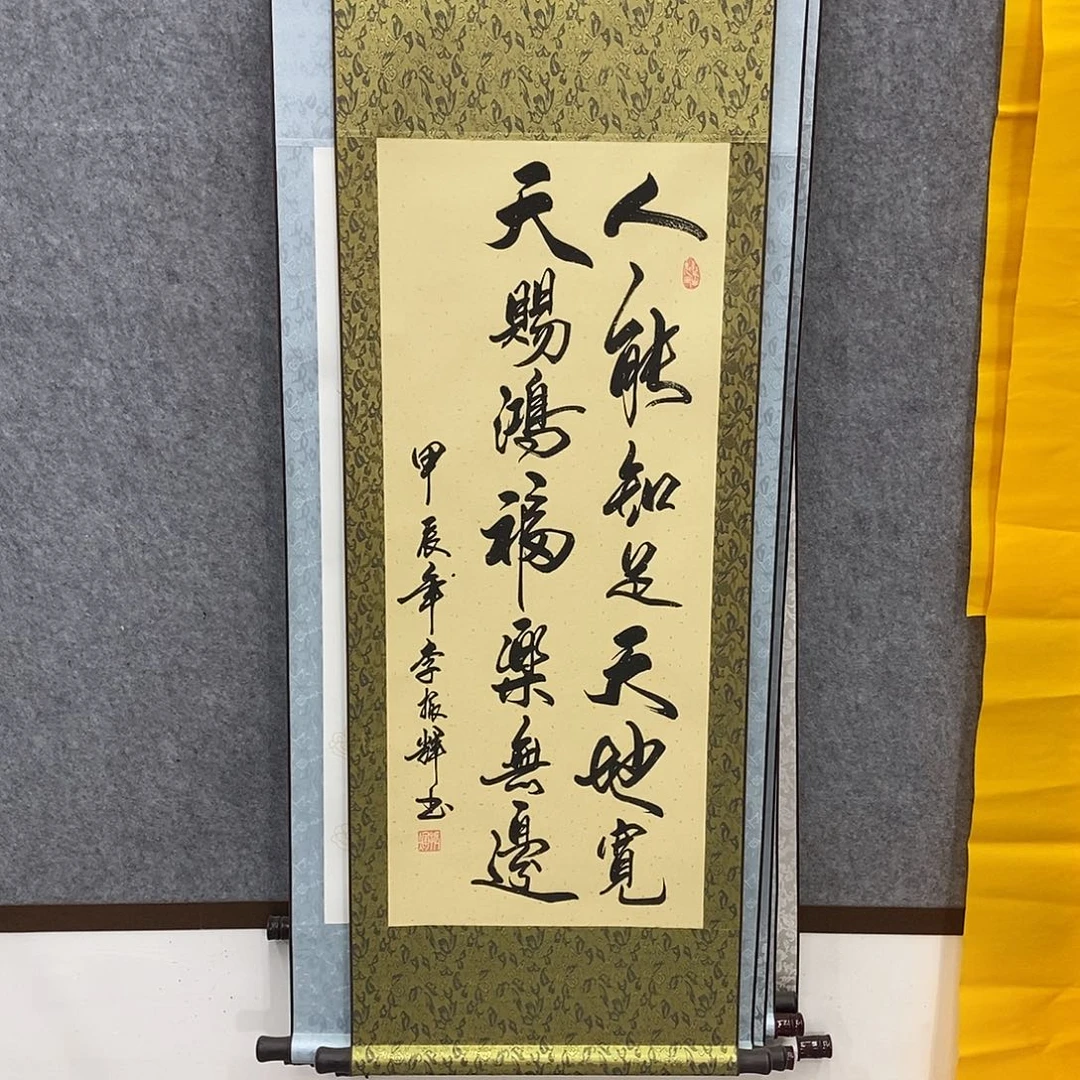 人能知足天地寬
天賜鴻福樂無邊
甲辰年李振輝书